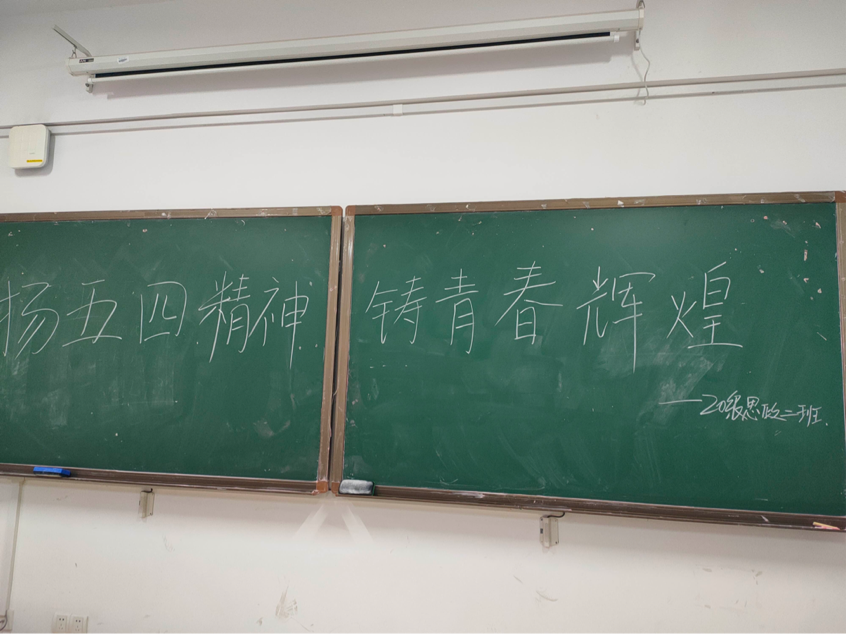 扬五四精神 铸青春辉煌
—20级思政二班